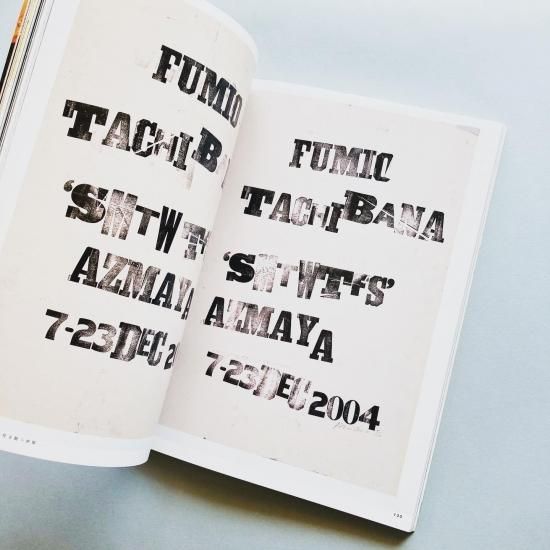 FUMIO
TACHIBANA
'SMTWTFS'
AZMAYA
7-23DEC 2
FUMIO
TACHIBANA
'SMTWTFS'
AZMAYA
7-23DEC 2004